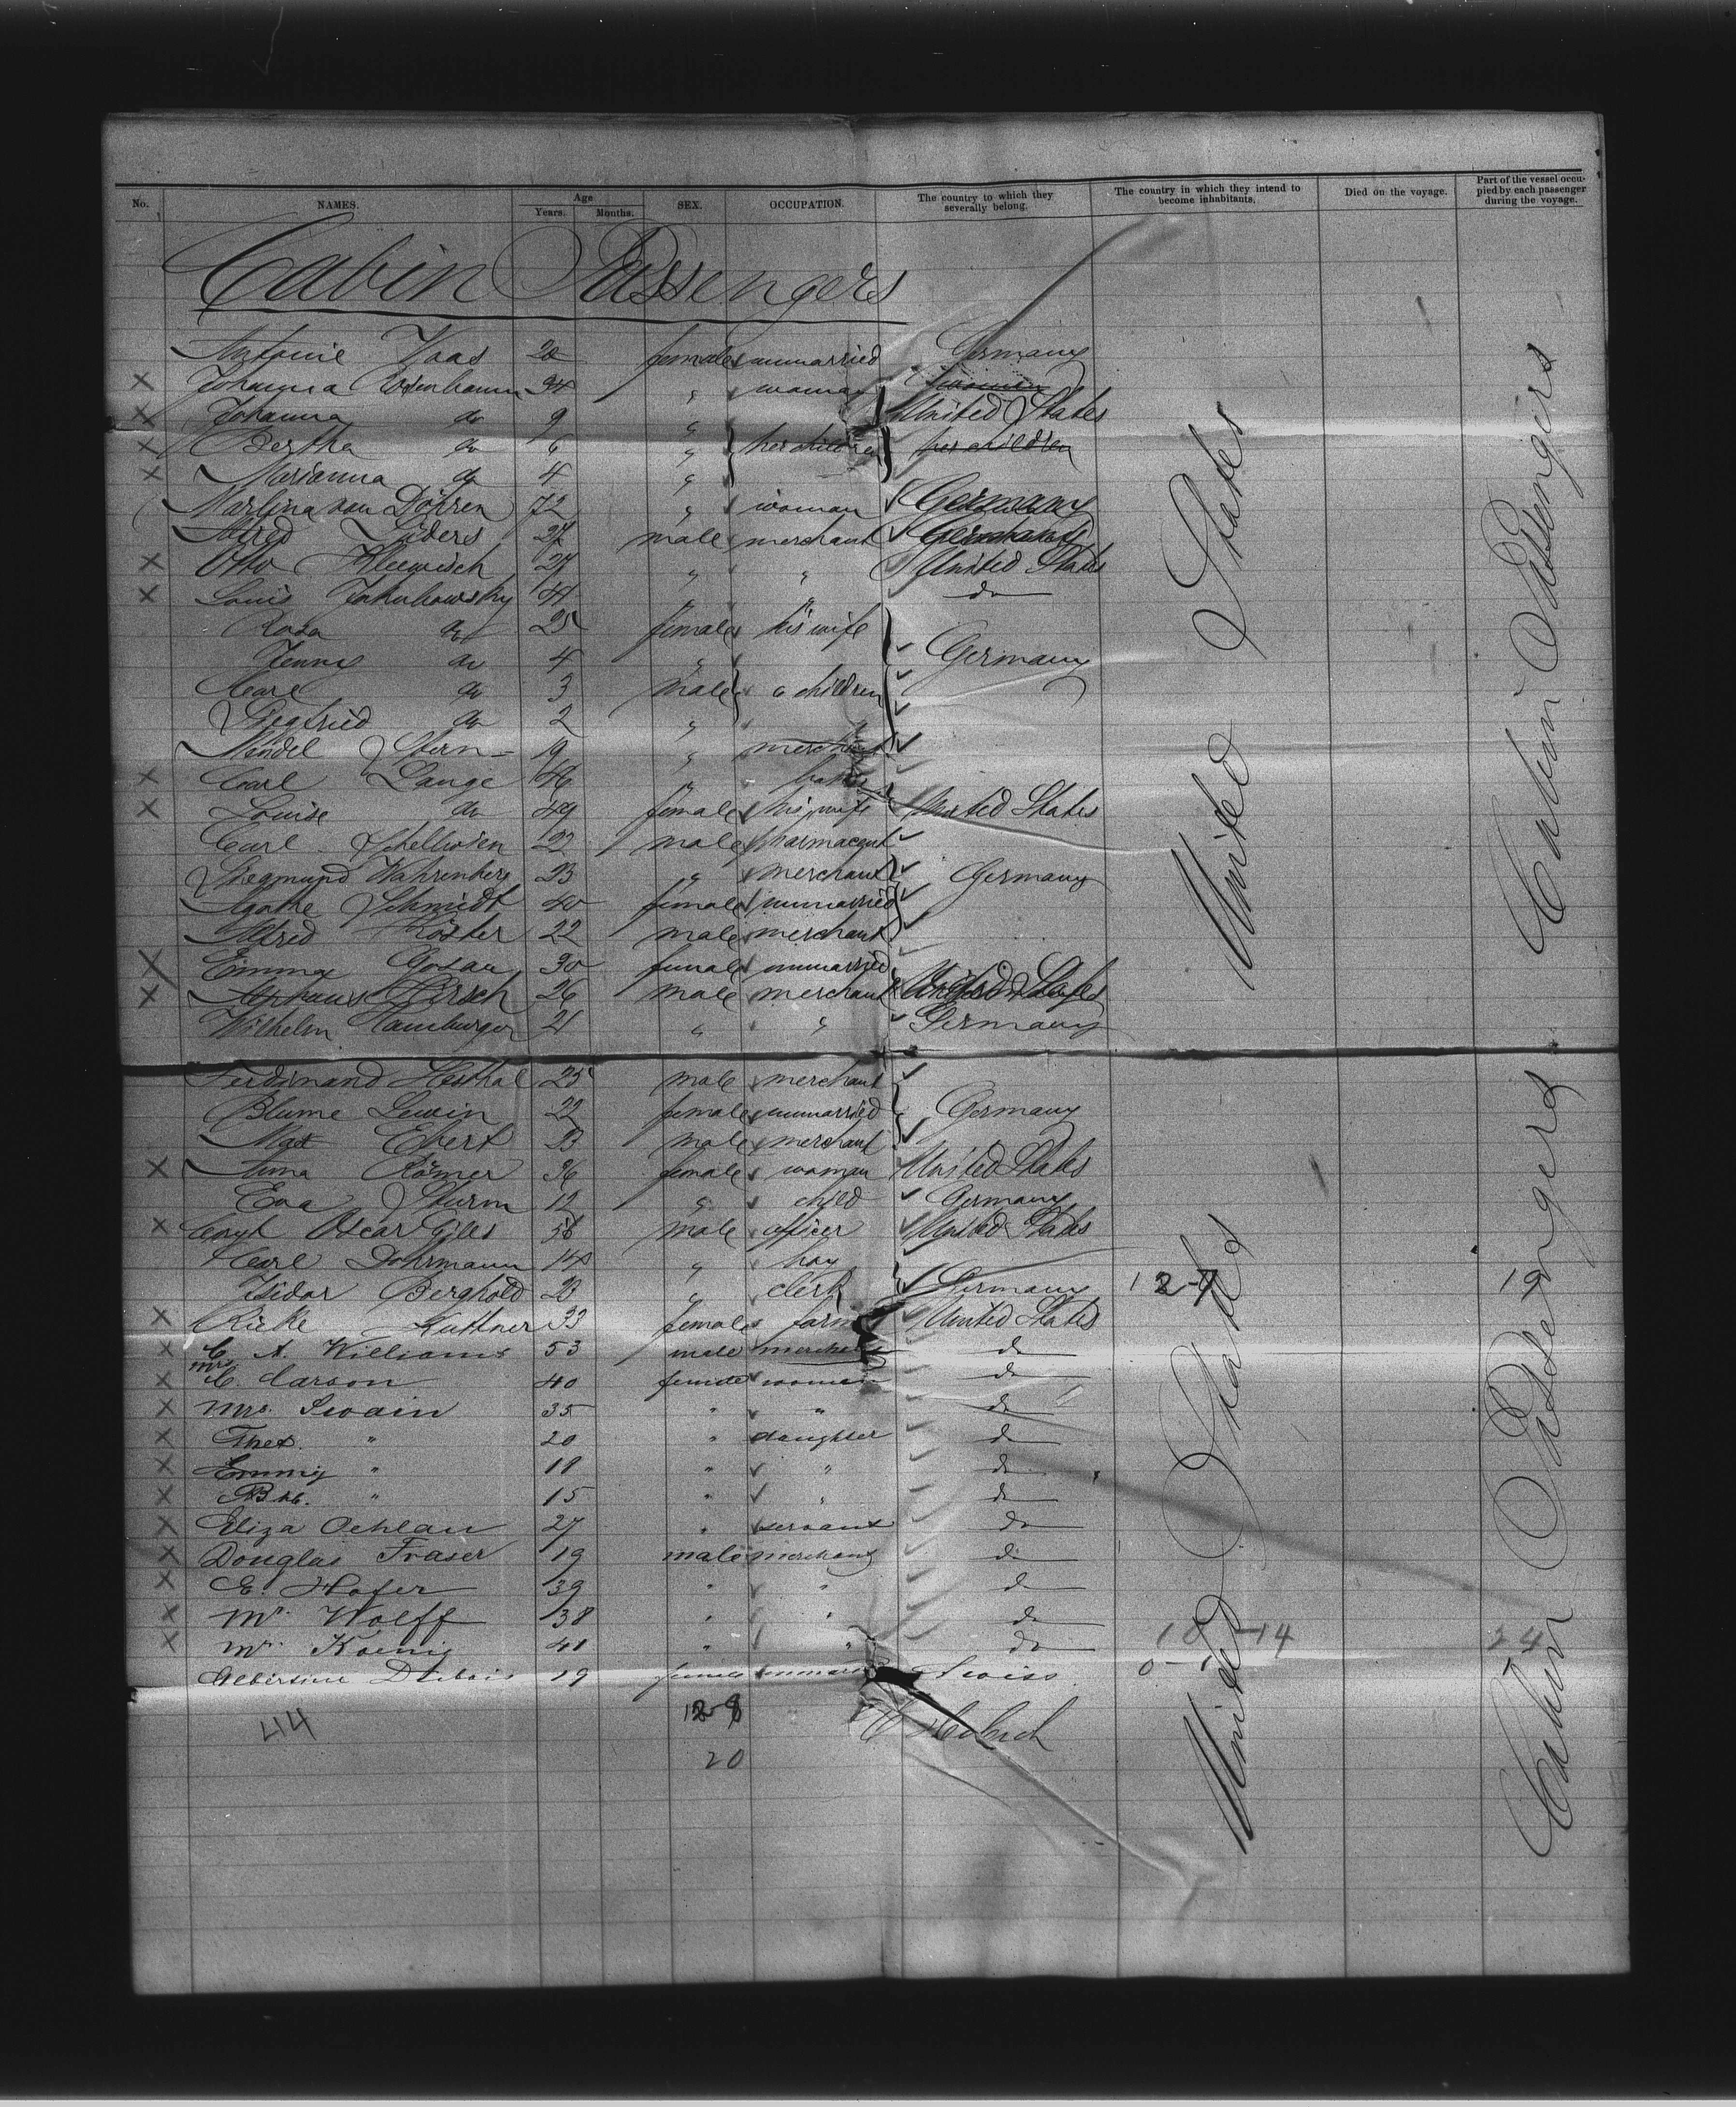 No. NAMES. Age Years. Months. SEX. OCCUPATION. The country to which they severally belong. The country in which they intend to become inhabitants. Died on the voyage. Part of the vessel occupied by each passenger during the voyage.
Cabin Passengers
Antonie Haas 20 female unmarried Germany
X Johanna Rosenbaum 34 " woman
X Johanna do 9 " United States
X Bertha do 6 " her children her children
X Marianna do 4 "
Martina von Döhren 72 " woman Germany
Alfred Lüders 27 male merchant
X Otto 27 " " United States
X Louis Jakubowsky 41 " " do
Rosa do 25 female his wife
Jenny do 4 " Germany
Carl do 3 male children
Siegfried do 2 "
Mendel Stern 19 " merchant
X Carl Lange 46 "
X Louise do 49 female his wife United States
Carl 22 male pharmaceut
Siegmund Wahrenberg 23 " merchant Germany
Agathe Schmidt 40 female unmarried
Alfred Köster 22 male merchant
X Emma 30 female unmarried
X Hirsch 26 male merchant United States
Wilhelm Hamburger 21 " " Germany
Ferdinand 25 male merchant
Blume Lewin 22 female unmarried Germany
Max Ebert 23 male merchant
X Anna Römer 36 female woman United States
Eva Sturm 12 " child Germany
X Oscar Giles 56 male officer United States
Carl Dohrmann 14 " boy
Isidor Berghold 20 " clerk Germany 12-7 19
X Rieke Kuttner 33 female United States
X C. A. Williams 53 male merchant do
X Mrs C. Carson 40 female woman do
X Mrs. Swain 35 " " do
X " 20 " daughter do
X Emmy " 18 " " do
X " 15 " " do
X Eliza 27 " servant do
X Douglas Fraser 19 male merchant do
X E. Hofer 39 " " do
X Mr. Wolff 38 " " do
X Mr. Koenig 41 " " do 10-14 24
Albertine Dubois 19 female Swiss
44
20
United States
United States
Cabin Passengers
Cabin Passengers